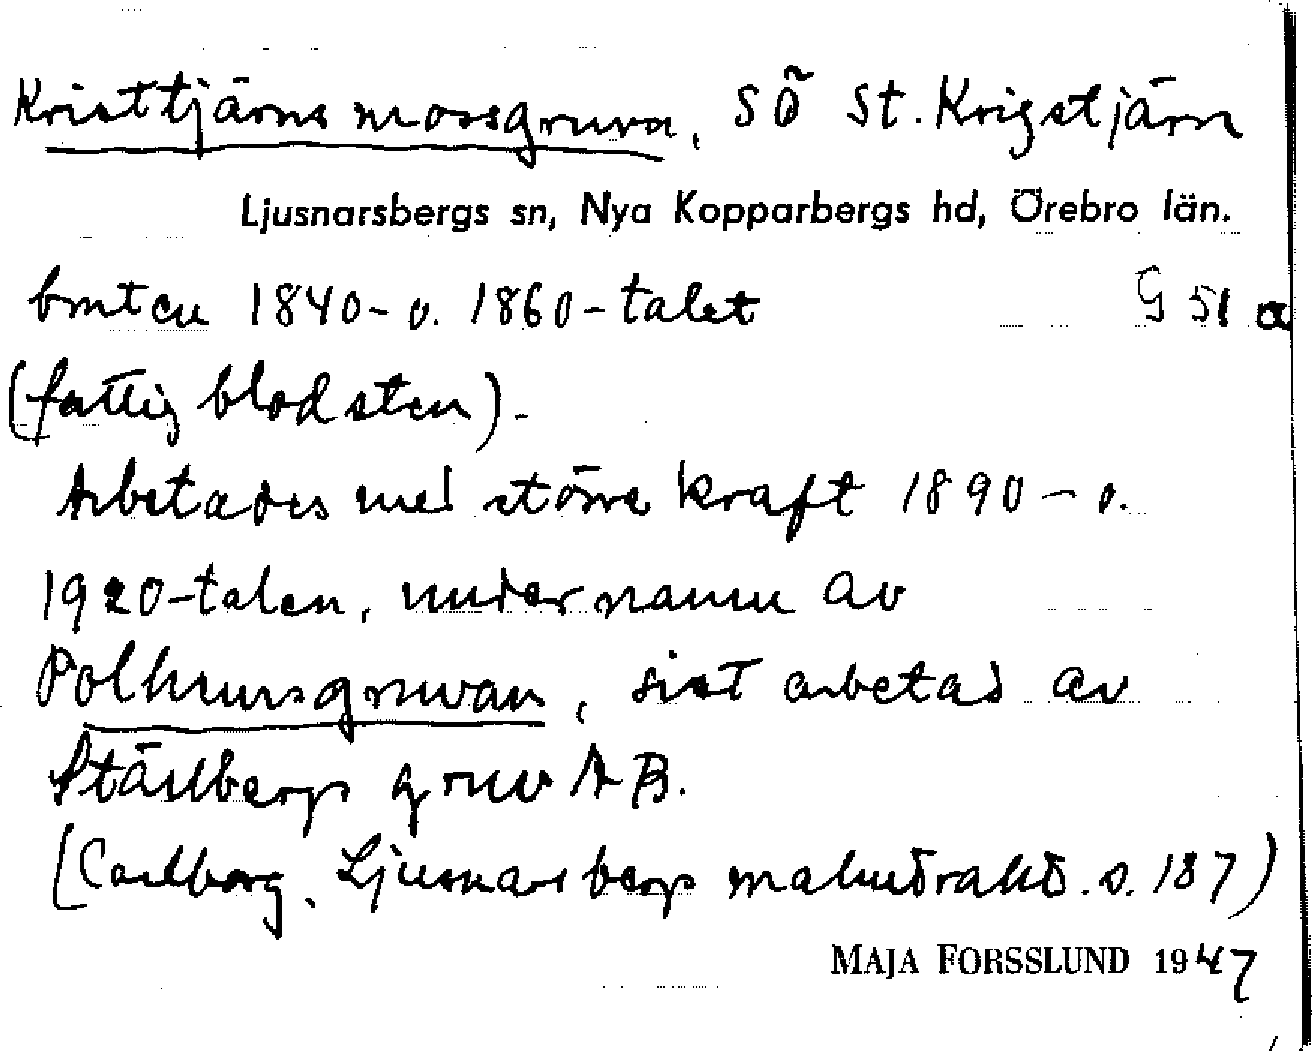 Kristtjärns mossgruva, SÖ St. Krigstjärn
Ljusnarsbergs sn, Nya Kopparbergs hd, Örebro län.
bruten 1840- o. 1860-talet G 51 a
(fattig blodsten).
Arbetades med större kraft 1890- o.
1920-talen, under namn av
Polhemsgruvan, sist arbetad av
Ställbergs gruv AB.
(Carlborg, Ljusnarsbergs malmtrakt. s. 187)
MAJA FORSSLUND 1947